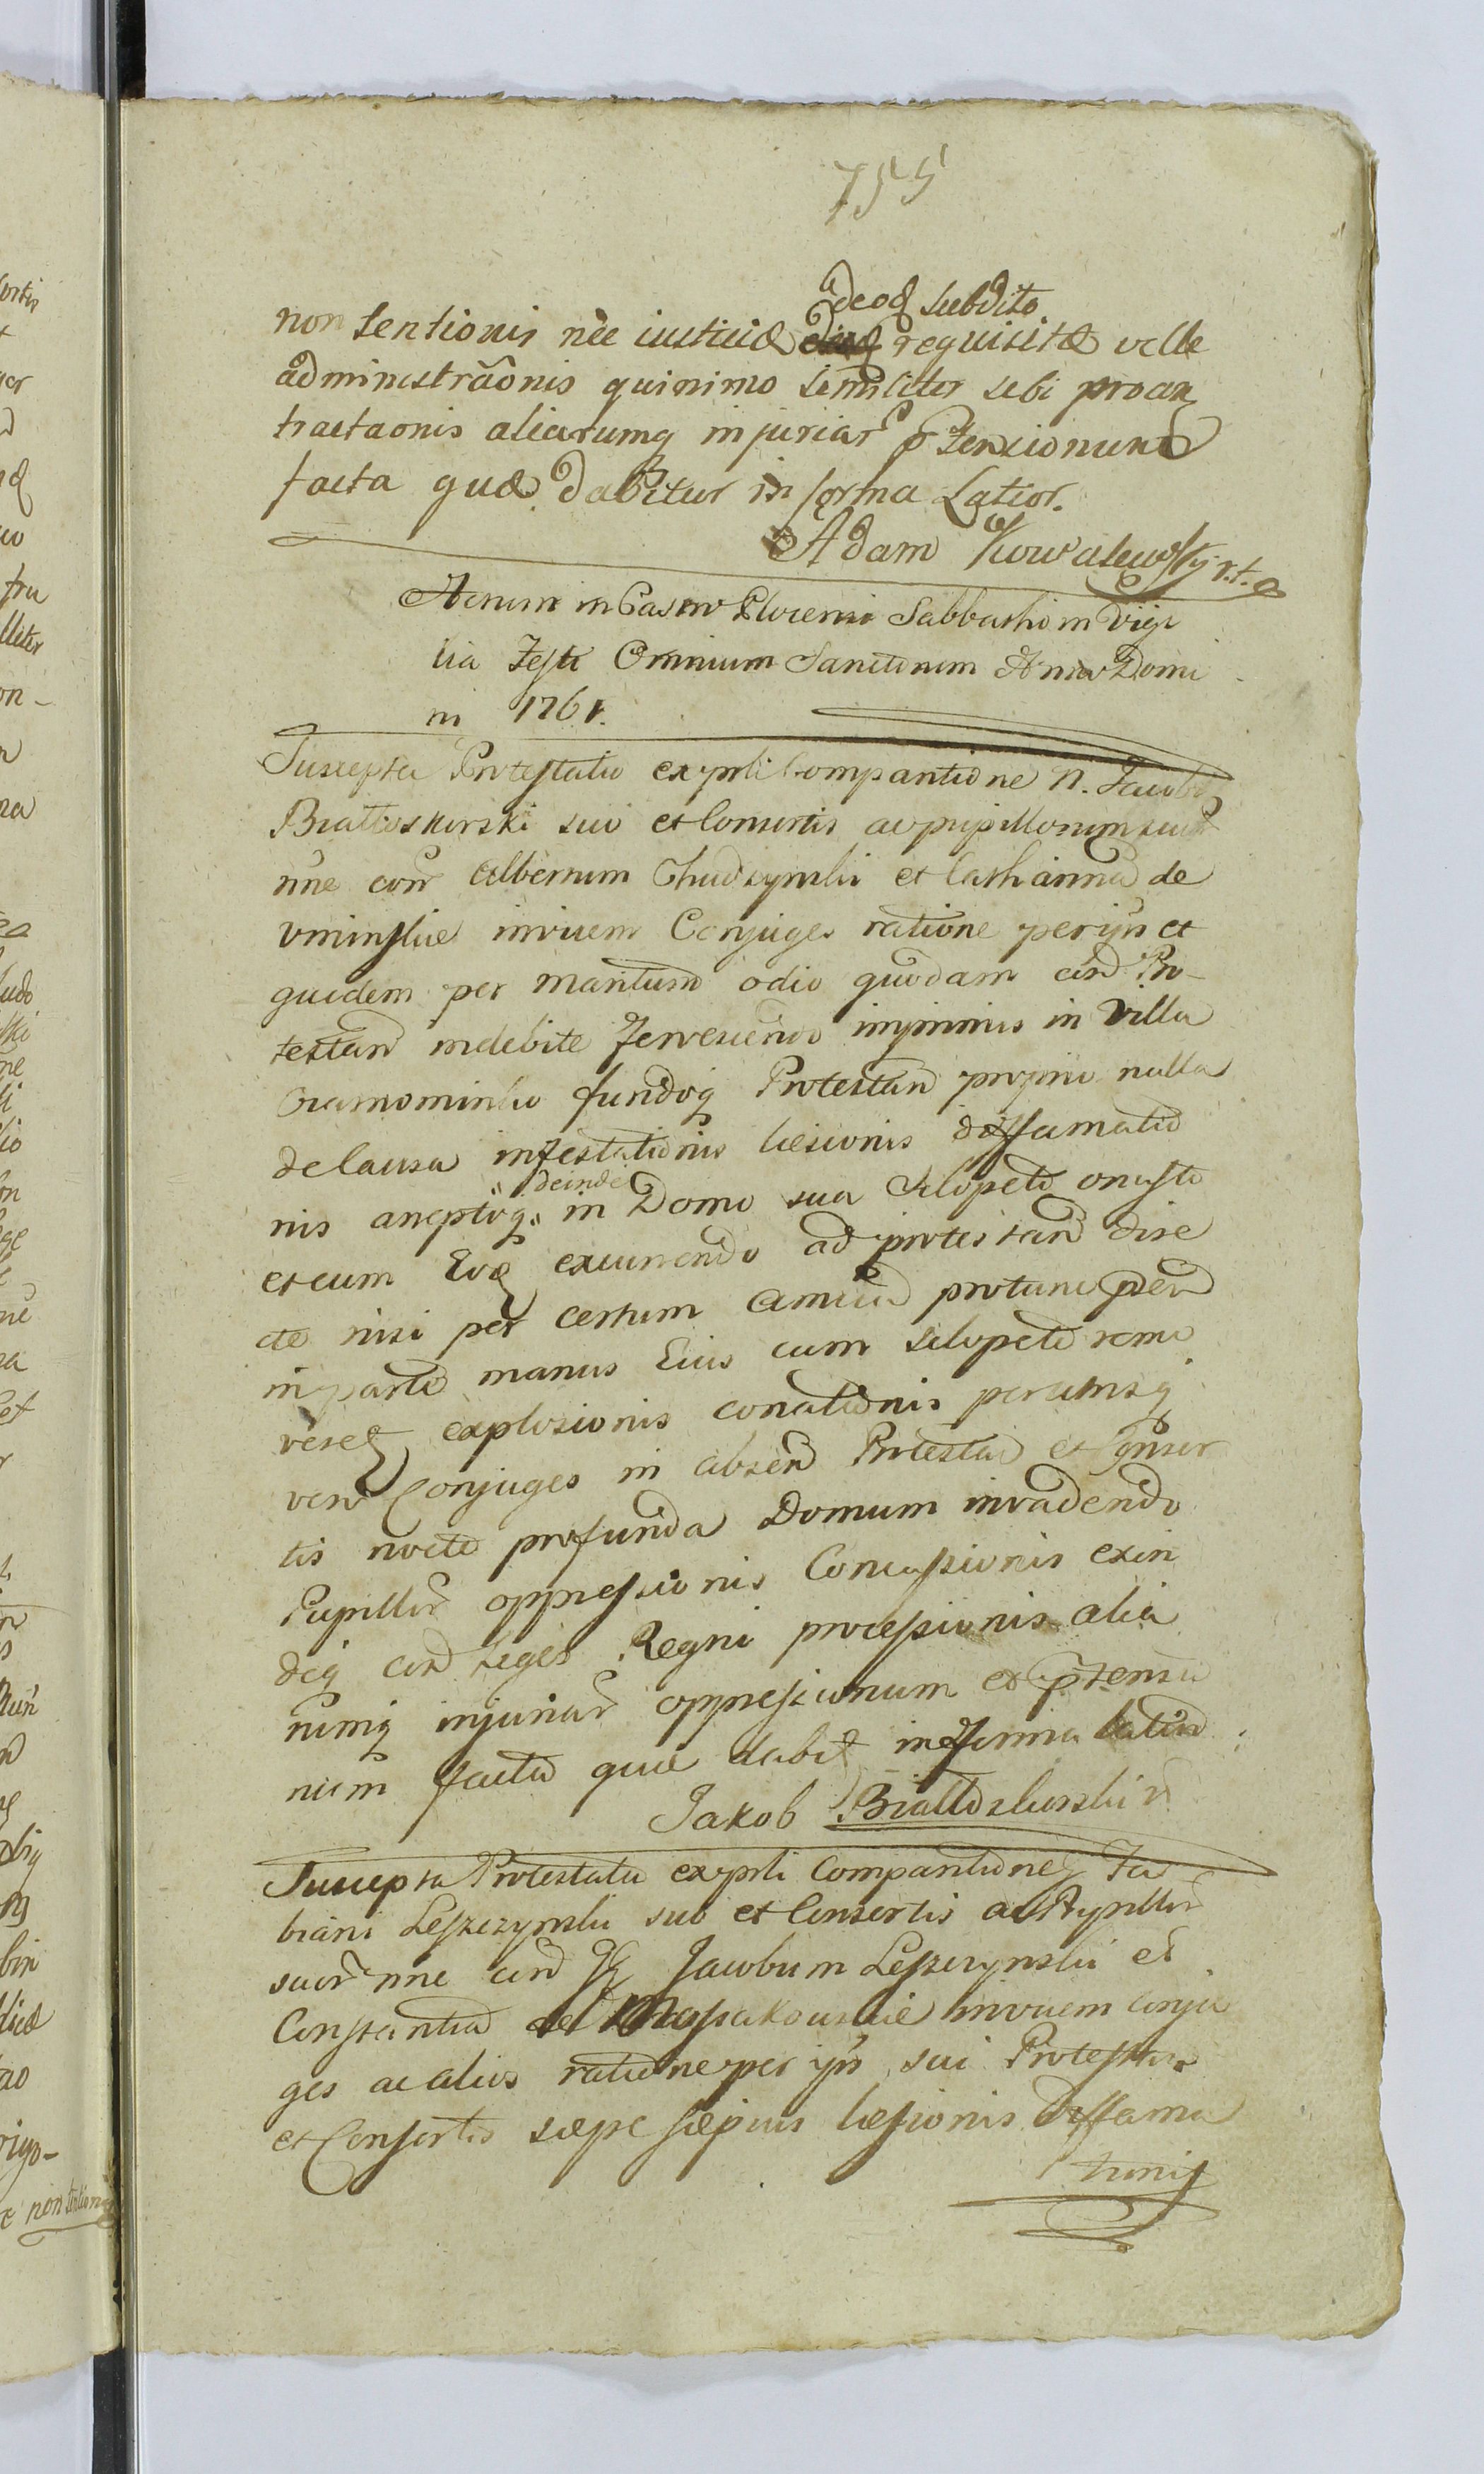 755
adeoq subdito
non sentionis nèe iusticiæ requisitæ velle
administrãonis quinimo similiter sibi proan
tractaonis aliarumq injuriar ptensionum
facta quæ dabitur in forma Latior.
Adam Kowalewsky
Actum in Castro Plocensi Sabbatho in Vigi
lia Festi Omnium Sanctorum Anno Domi
ni 1761.
Suscepta Protestatio ex prli Comparitione N. Jacobi
Białłoskurski suo et Consortis ac pupillorum suor
nne con Albertum Chudzynski et Catharinam de
uminskie invicem Conjuges ratione per ijs et
quidem per maritum odio quodam con Pro-
testan indebite fervescendo inprimis in Villa
fundoq Protestan proprio nulla
de causa infestationis læsionis diffamatio
deinde
nis in Domo sua Sclopeto onusto
et cum Eoq excurrendo ad protestan dire
cte nisi per certum amicum protunc psen
in parte manus Eius cum Sclopeto remo
veret explosionis conationis per utrosq
vero Conjuges in absen Protestan et Conser
tis nocte profunda Domum invadendo
Pupillor oppressionis Concussionis exin
deq con Leges Regni processionis alia
rumq injuriar oppressionum et ptensio
num facta quæ dabit in forma latior
Jakob Białłoskurski
Suscepta Protestatio ex prli Comparitione G Fa
biani Leszczynski suo et Consortis ac Pupillor
suor nne con GG Jacobum Leszczynski et
Constantiam de invicem conju
ges ac alios ratione per ijs sui Protestan
et Consortis sæpe sæpius læsionis diffama
tionis